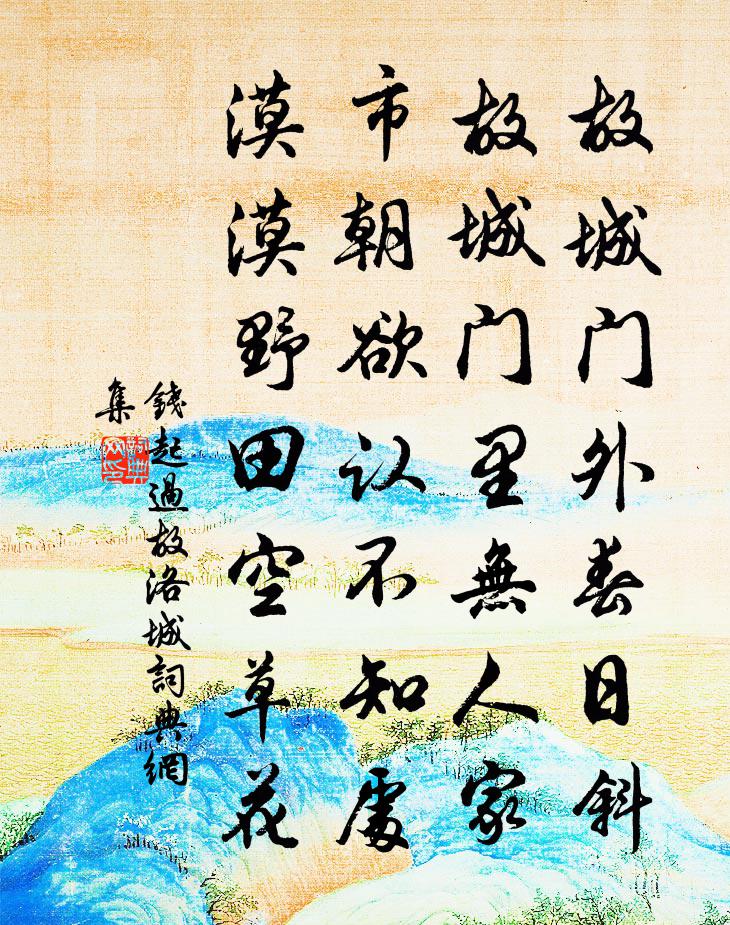 故城门外春日斜
故城门里無人家
市朝欲认不知處
漠漠野田空草花
錢起過故洛城詞典網
集